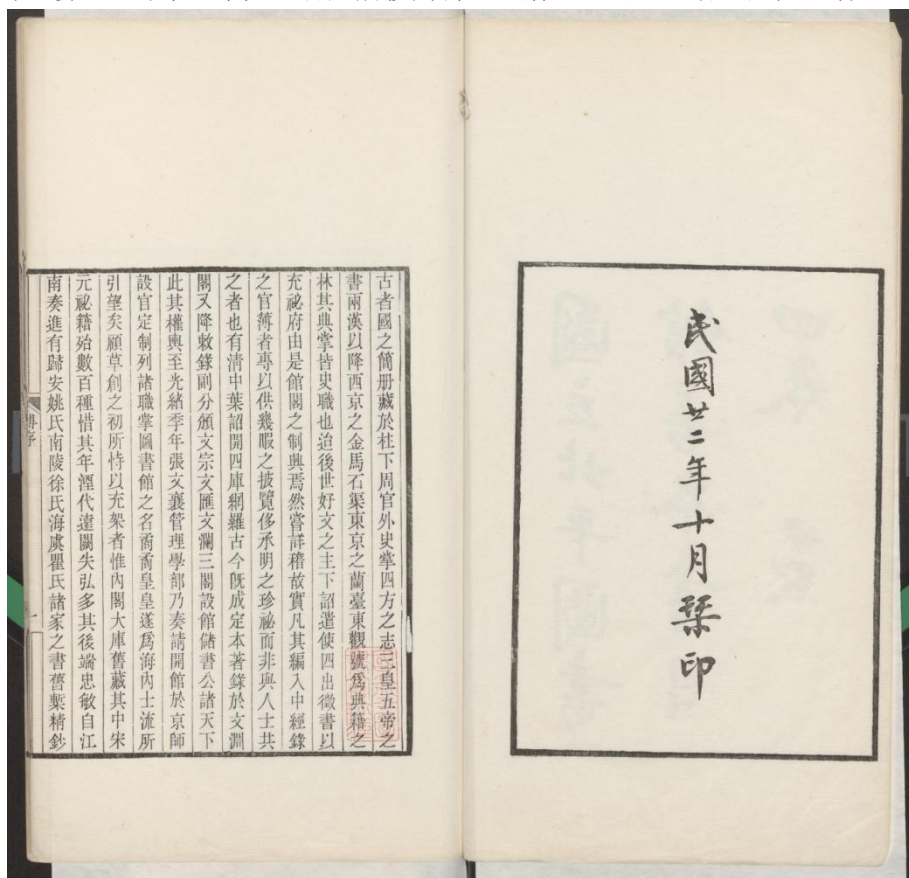 民國廿二年十月琹印
古者國之簡册藏於柱下周官外史掌四方之志三皇五帝之
書兩漢以降西京之金馬石渠東京之蘭臺東觀號爲典籍之
林其典掌皆史職也迨後世好文之主下詔遣使四出徵書以
充祕府由是館閣之制興焉然嘗詳稽故實凡其編入中經錄
之官簿者專以供幾暇之披覽侈承明之珍祕而非與人士共
之者也有清中葉詔開四庫網羅古今旣成定本著錄於文淵
閣又降敕錄副分頒文宗文匯文瀾三閣設館儲書公諸天下
此其權輿至光緒季年張文襄管理學部乃奏請開館於京師
設官定制列諸職掌圖書館之名矞矞皇皇遂爲海內士流所
引望矣顧草創之初所恃以充架者惟內閣大庫舊藏其中宋
元祕籍殆數百種惜其年湮代遠闕失弘多其後端忠敏自江
南奏進有歸安姚氏南陵徐氏海虞瞿氏諸家之書舊槧精鈔
傅序
一